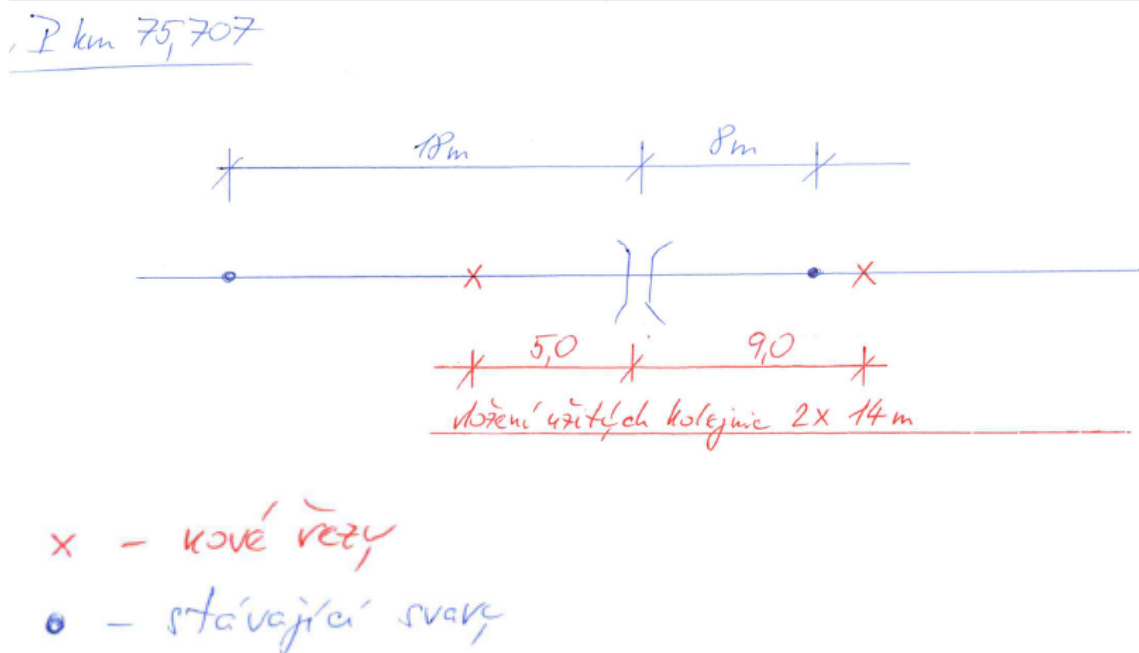 P km 75,707
18m 8m
5,0 9,0
vložení užitých kolejnic 2x 14m
x - nové řezy
- stávající svary